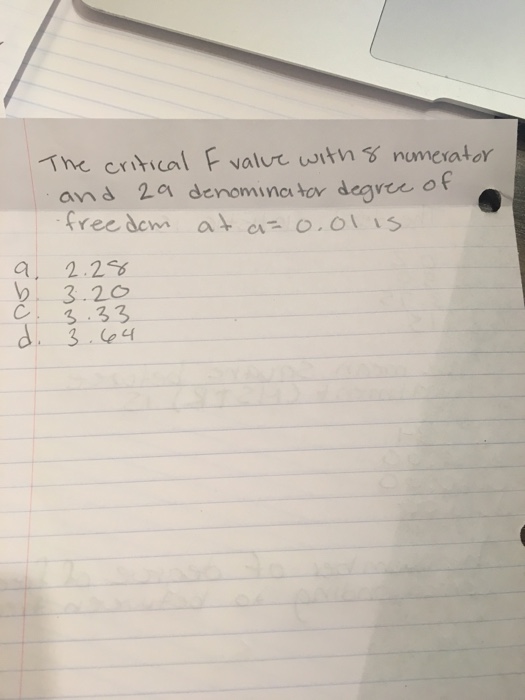 The critical F value with 8 numerator
and 29 denominator degree of
freedom at a= 0.01 is
a. 2.28
b 3.20
c. 3.33
d. 3.64